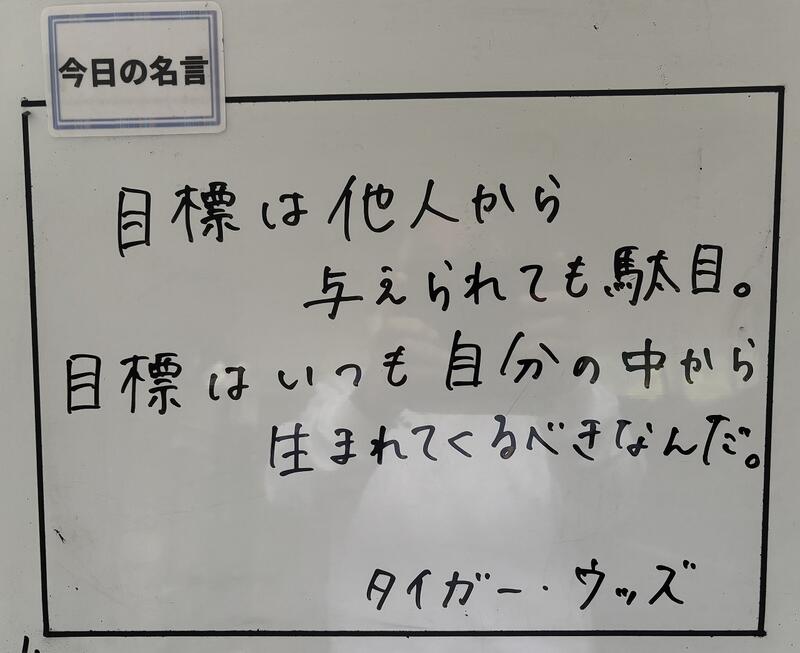 今日の名言
目標は他人から
与えられても駄目。
目標はいつも自分の中から
生まれてくるべきなんだ。
タイガー・ウッズ